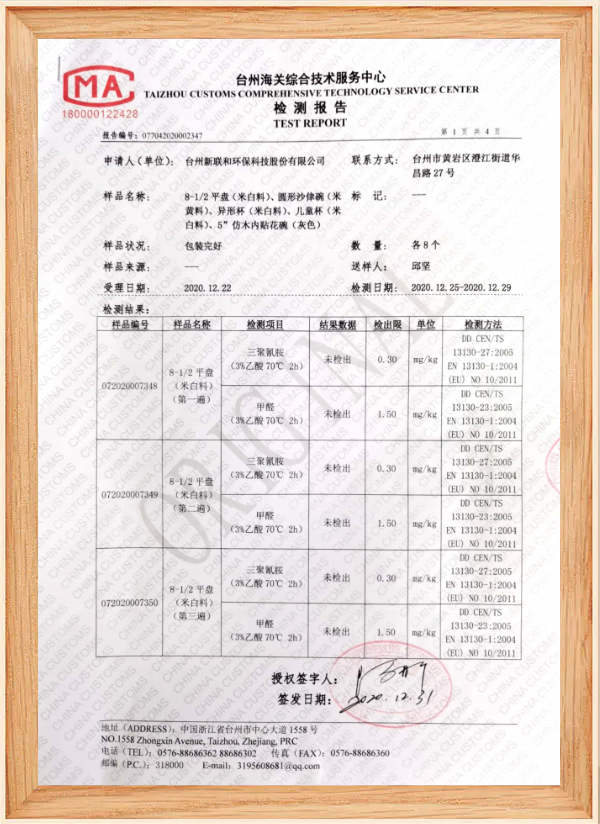 MA
180000122428
台州海关综合技术服务中心
TAIZHOU CUSTOMS COMPREHENSIVE TECHNOLOGY SERVICE CENTER
检测报告
TEST REPORT
报告编号: 077042020002347
第 1 页 共 4 页
申请人(单位): 台州新联和环保科技股份有限公司 联系方式: 台州市黄岩区澄江街道华
昌路27号
样品名称: 8-1/2 平盘(米白料)、圆形沙侓碗(米 标 记: ——
黄料)、异形杯(米白料)、儿童杯(米
白料)、5"仿木内贴花碗(灰色)
样品状况: 包装完好 数 量: 各8个
样品来源: —— 送样人: 邱坚
受理日期: 2020.12.22 检测日期: 2020.12.25-2020.12.29
检测结果:
样品编号 样品名称 检测项目 结果数据 检出限 单位 检测方法
072020007348 8-1/2 平盘 (米白料) (第一遍)
三聚氰胺 (3%乙酸 70℃ 2h) 未检出 0.30 mg/kg DD CEN/TS 13130-27:2005 EN 13130-1:2004 (EU) NO 10/2011
甲醛 (3%乙酸 70℃ 2h) 未检出 1.50 mg/kg DD CEN/TS 13130-23:2005 EN 13130-1:2004 (EU) NO 10/2011
072020007349 8-1/2 平盘 (米白料) (第二遍)
三聚氰胺 (3%乙酸 70℃ 2h) 未检出 0.30 mg/kg DD CEN/TS 13130-27:2005 EN 13130-1:2004 (EU) NO 10/2011
甲醛 (3%乙酸 70℃ 2h) 未检出 1.50 mg/kg DD CEN/TS 13130-23:2005 EN 13130-1:2004 (EU) NO 10/2011
072020007350 8-1/2 平盘 (米白料) (第三遍)
三聚氰胺 (3%乙酸 70℃ 2h) 未检出 0.30 mg/kg DD CEN/TS 13130-27:2005 EN 13130-1:2004 (EU) NO 10/2011
甲醛 (3%乙酸 70℃ 2h) 未检出 1.50 mg/kg DD CEN/TS 13130-23:2005 EN 13130-1:2004 (EU) NO 10/2011
ORIGINAL
授权签字人:
签发日期: 2020.12.31
地址(ADDRESS): 中国浙江省台州市中心大道1558号
NO.1558 Zhongxin Avenue, Taizhou, Zhejiang, PRC
电话(TEL): 0576-88686362 88686302 传真(FAX): 0576-88686360
邮编(P.C.): 318000 E-mail: 3195608681@qq.com
CHINA CUSTOMS